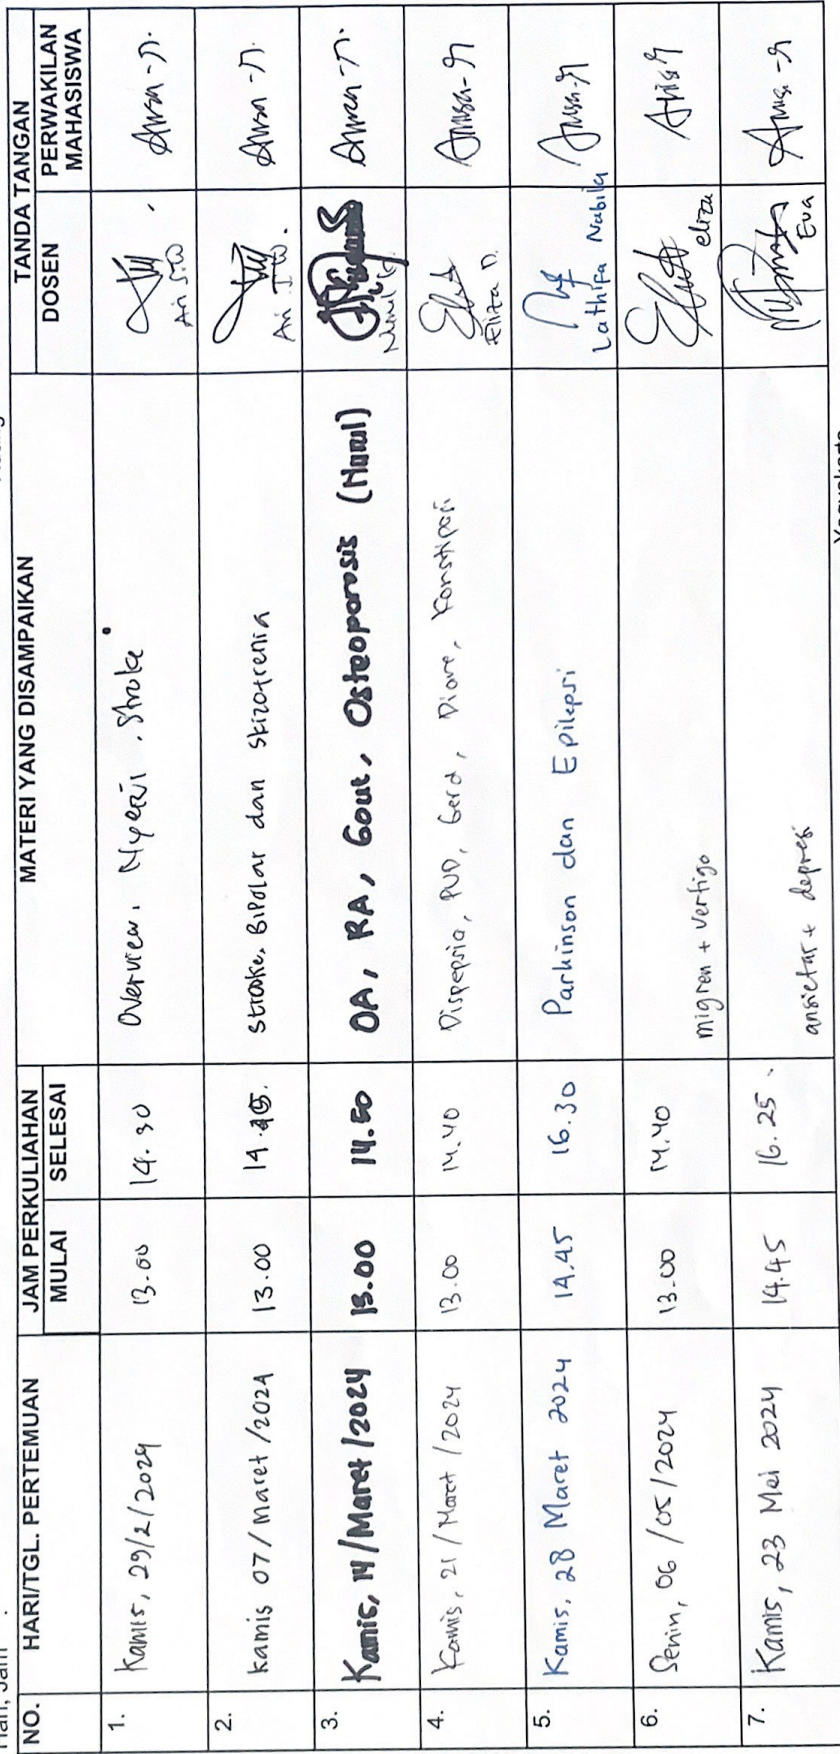 NO. HARI/TGL. PERTEMUAN JAM PERKULIAHAN MATERI YANG DISAMPAIKAN TANDA TANGAN
MULAI SELESAI DOSEN PERWAKILAN MAHASISWA
1. Kamis, 29/2/2024 13.00 14.30 Overview, Nyeri, Stroke Ari S.W
2. Kamis 07/maret/2024 13.00 14.45. Stroke, Bipolar dan Skizofrenia Ari S.W.
3. Kamis, 14/Maret/2024 13.00 14.50 OA, RA, Gout, Osteoporosis (Nurul) Nurul
4. Kamis, 21/Maret/2024 13.00 14.40 Dispepsia, PUD, Gerd, Diare, Konstipasi Eliza D.
5. Kamis, 28 Maret 2024 14.45 16.30 Parkinson dan Epilepsi Lathifa Nabila
6. Senin, 06/05/2024 13.00 14.40 migren + vertigo eliza
7. Kamis, 23 Mei 2024 14.45 16.25 ansietas + depresi Eva